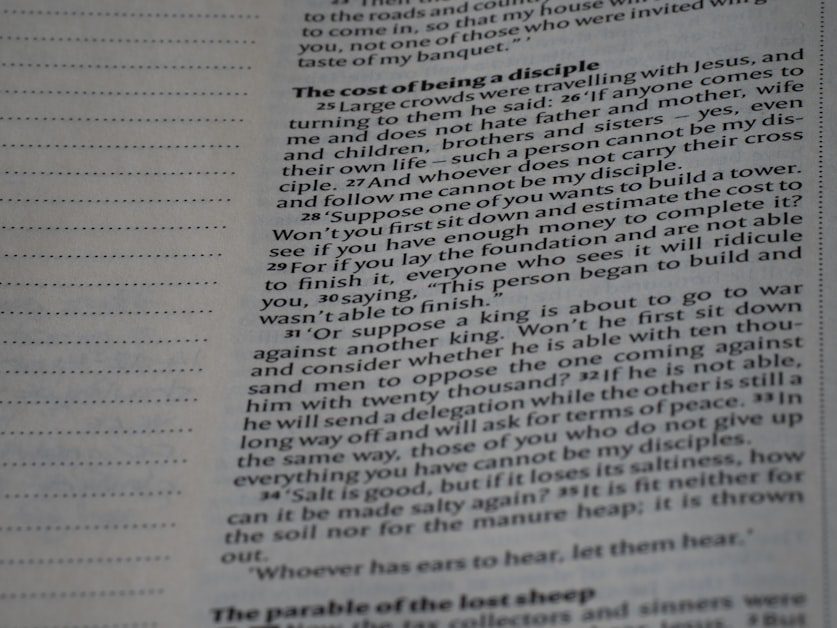 to the roads and
to come in, so that my house
you, not one of those who were invited will
taste of my banquet.” ’
The cost of being a disciple
25 Large crowds were travelling with Jesus, and
turning to them he said: 26 ‘If anyone comes to
me and does not hate father and mother, wife
and children, brothers and sisters – yes, even
their own life – such a person cannot be my dis-
ciple. 27 And whoever does not carry their cross
and follow me cannot be my disciple.
28 ‘Suppose one of you wants to build a tower.
Won’t you first sit down and estimate the cost to
see if you have enough money to complete it?
29 For if you lay the foundation and are not able
to finish it, everyone who sees it will ridicule
you, 30 saying, “This person began to build and
wasn’t able to finish.”
31 ‘Or suppose a king is about to go to war
against another king. Won’t he first sit down
and consider whether he is able with ten thou-
sand men to oppose the one coming against
him with twenty thousand? 32 If he is not able,
he will send a delegation while the other is still a
long way off and will ask for terms of peace. 33 In
the same way, those of you who do not give up
everything you have cannot be my disciples.
34 ‘Salt is good, but if it loses its saltiness, how
can it be made salty again? 35 It is fit neither for
the soil nor for the manure heap; it is thrown
out.
‘Whoever has ears to hear, let them hear.’
The parable of the lost sheep
Now the tax collectors and sinners were
Jesus. 2 But